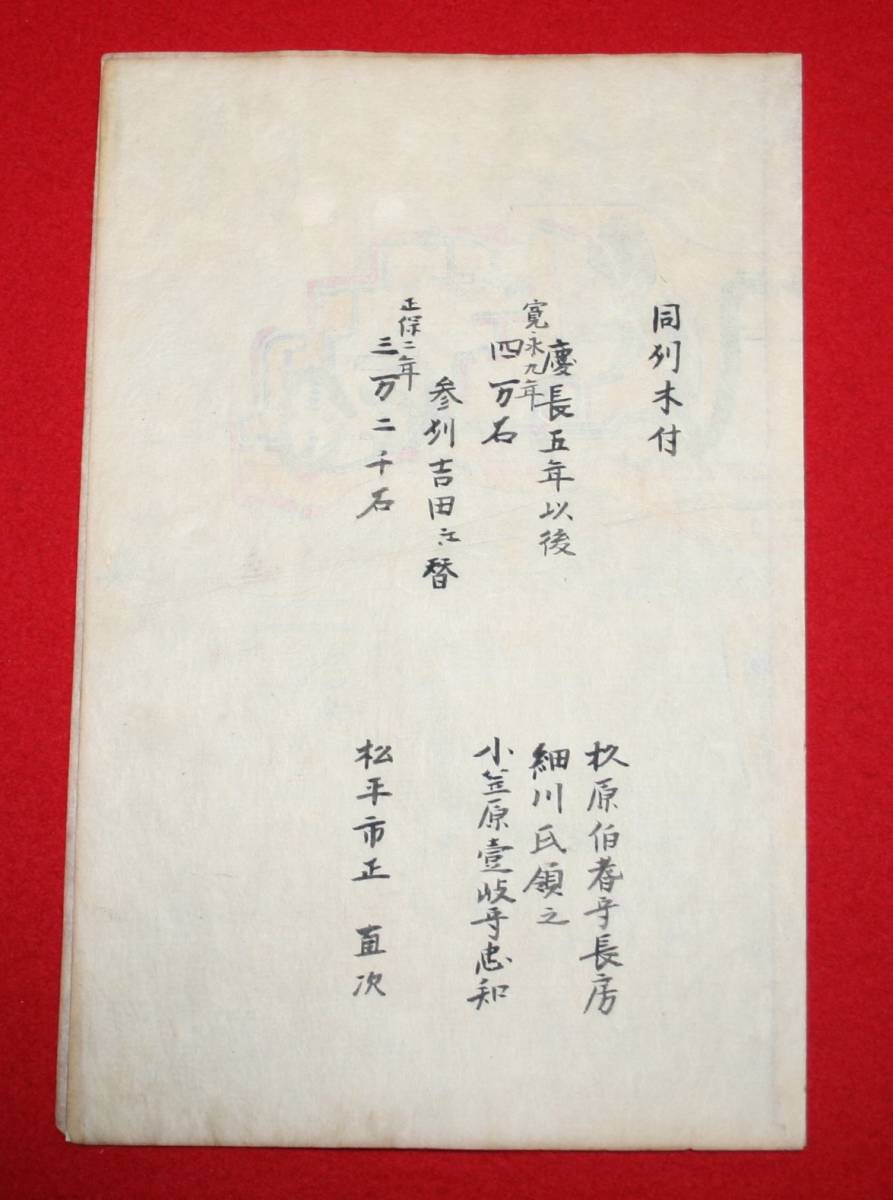 同州木付
杦原伯耆守長房
慶長五年以後
細川氏領之
寛永九年
四万石
小笠原壹岐守忠知
参州吉田江替
正保二年
三万二千石
松平市正 直次